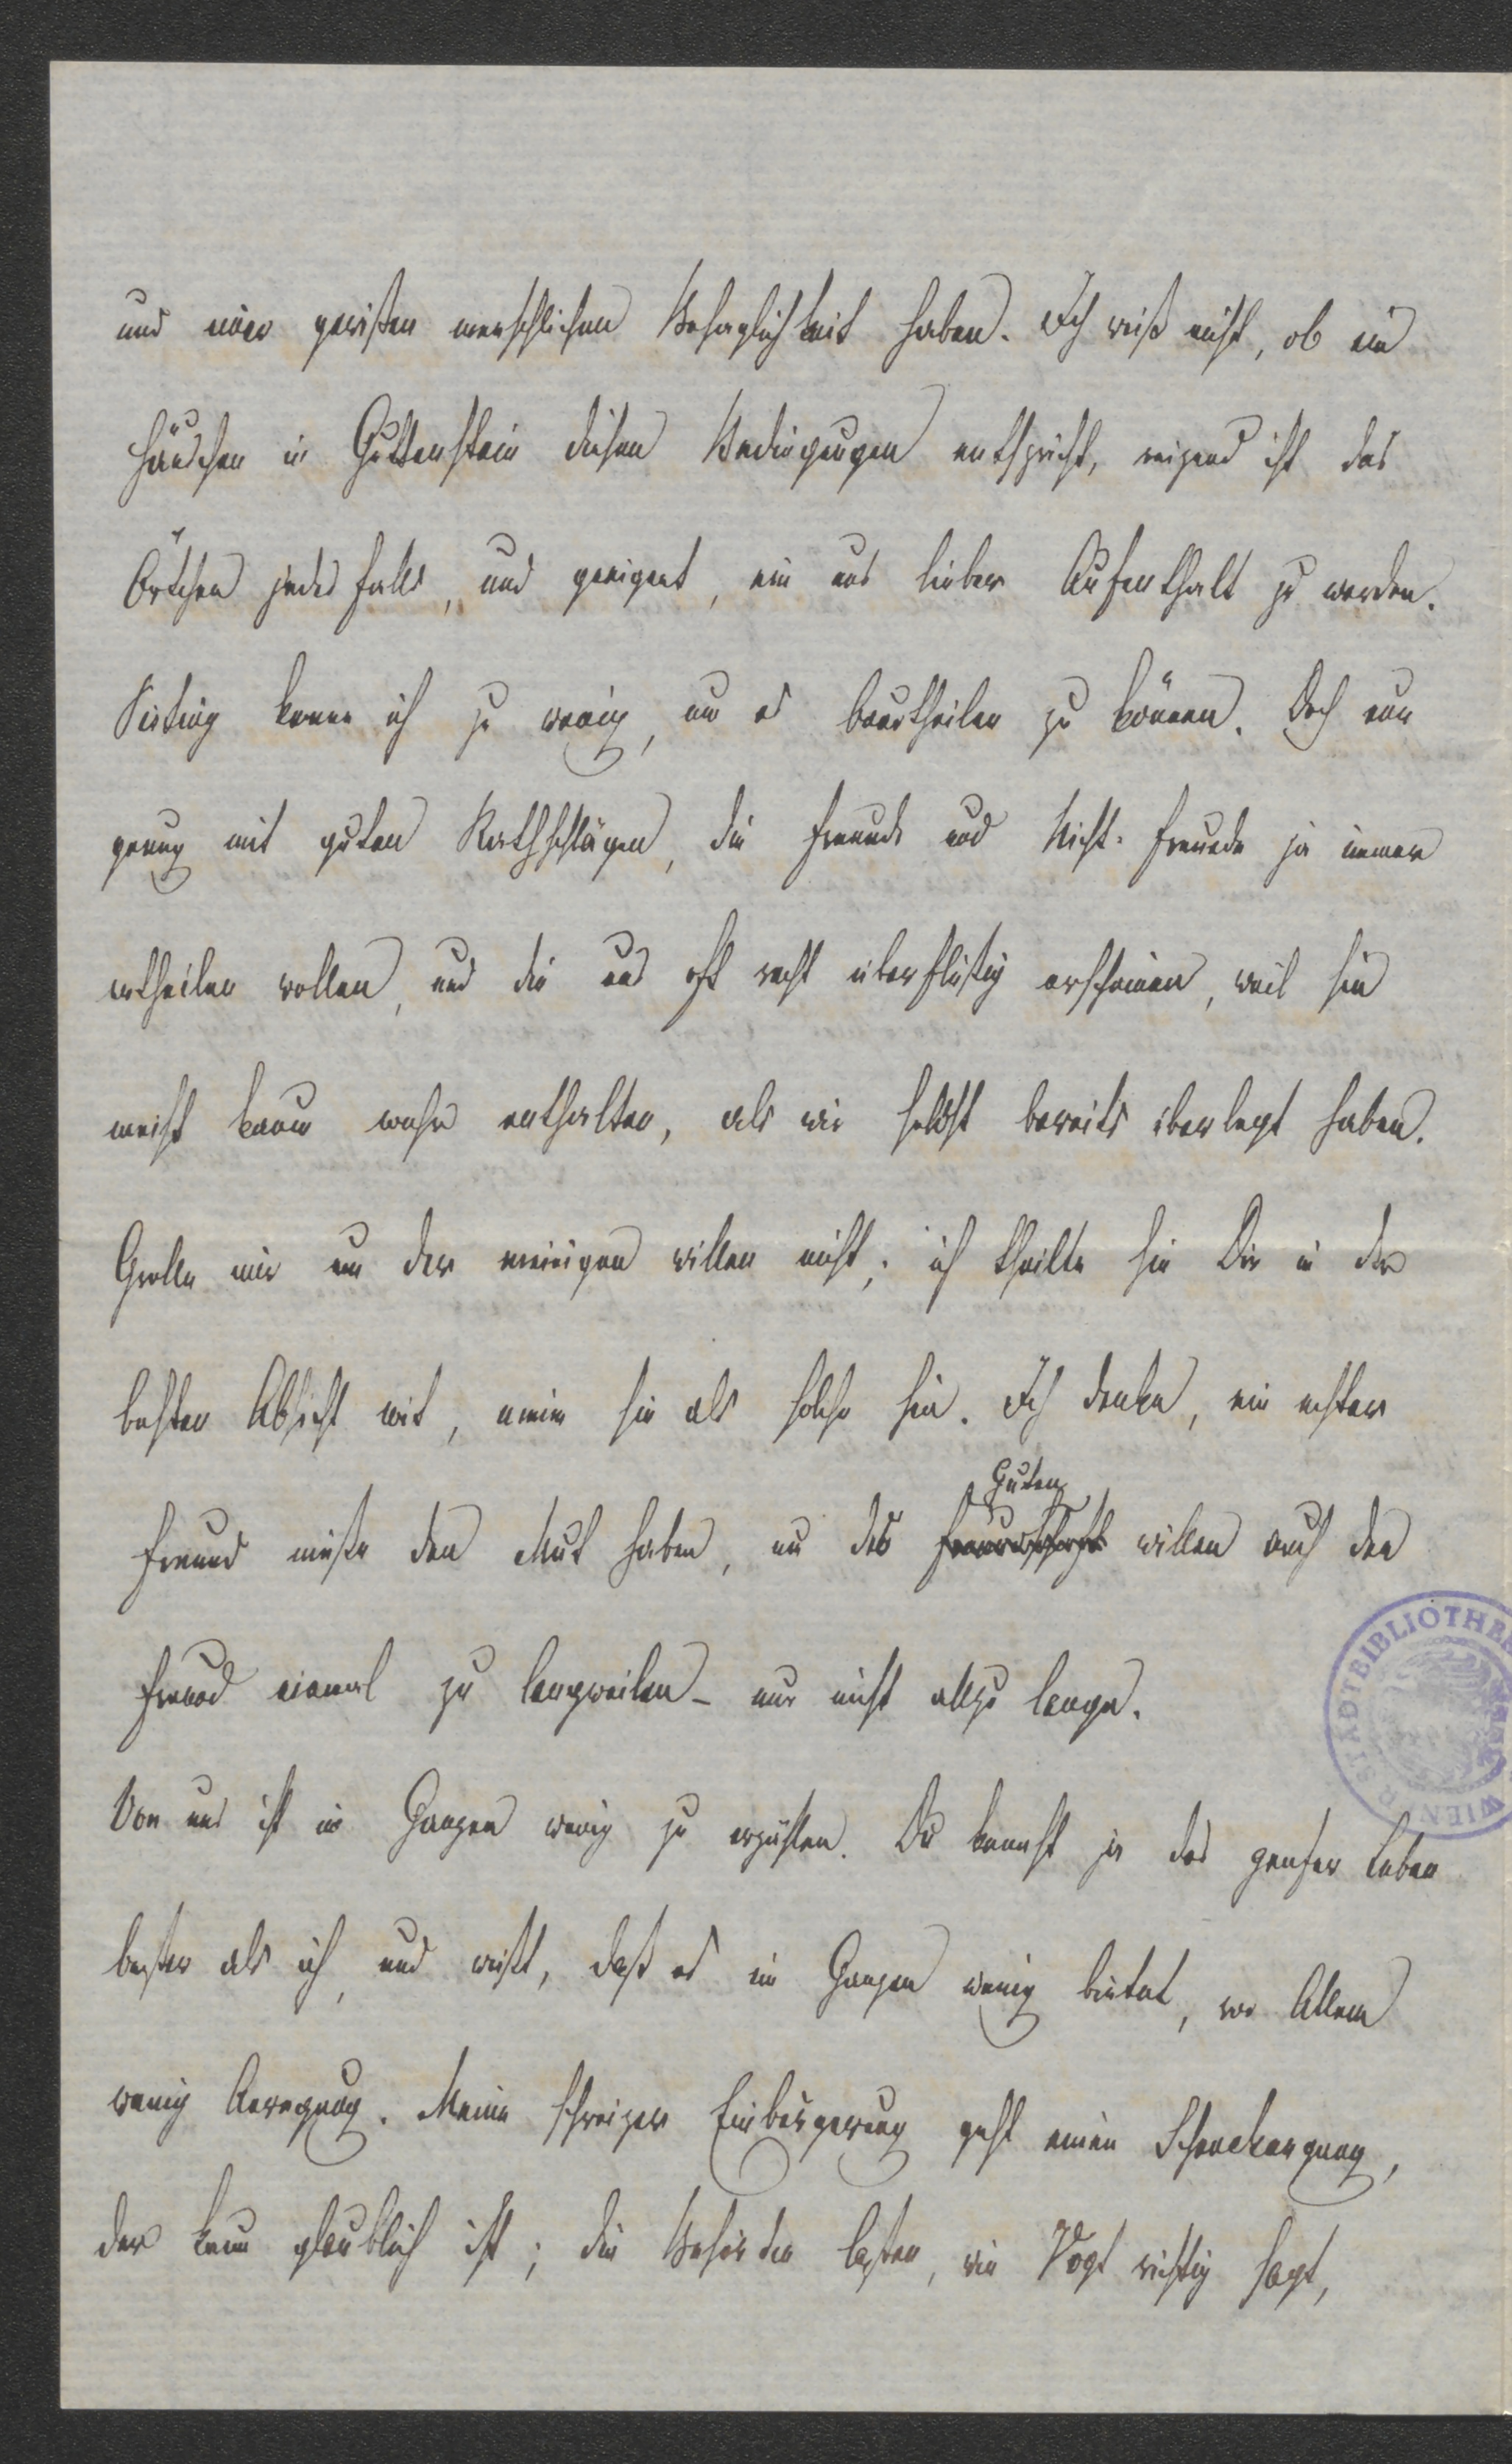 und einer gewißen menschlichen Behaglichkeit haben. Ich weiß nicht, ob ein
Häuschen in Guttenstein diesen Bedingungen entspricht, reizend ist das
Örtchen jedesfalls, und geeignet, ein uns lieber Aufenthalt zu werden.
Piesting kenne ich zu wenig, um es beurtheilen zu können. Doch nun
genug mit guten Rathschlägen, die Freunde und Nicht-Freunde ja immer
ertheilen wollen, und die uns oft recht überflüßig erscheinen, weil sie
meist kaum mehr enthalten, als wir selbst bereits überlegt haben.
Grolle mir um der meinigen willen nicht; ich theilte sie Dir in der
besten Absicht mit, nimm sie als solche hin. Ich denke, ein echter
Guten
Freund müße den Mut haben, um des Freundschaft willen auch den
Freund einmal zu langweilen – nur nicht allzu lange.
Von uns ist im Ganzen wenig zu erzählen. Du kennst ja das genfer Leben
beßer als ich, und weißt, daß es im Ganzen wenig bietet, vor Allem
wenig Anregung. Meine schweizer Einbürgerung geht einen Schneckengang,
der kaum glaublich ist; die Behörden laßen, wie Vogt richtig sagt,
WIENER STADTBIBLIOTHEK